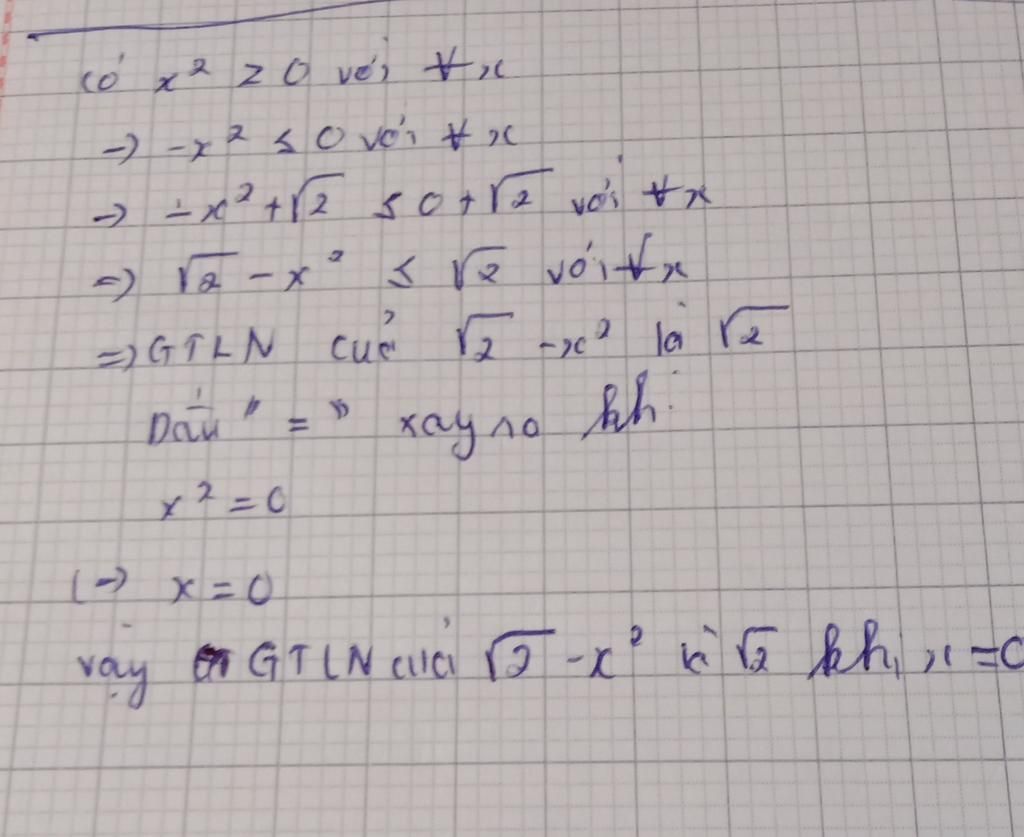 Có x² ≥ 0 với ∀x
→ -x² ≤ 0 với ∀x
→ -x² + √2 ≤ 0 + √2 với ∀x
=> √2 - x² ≤ √2 với ∀x
=> GTLN của √2 - x² là √2
Dấu "=" xảy ra khi
x² = 0
(→ x = 0
vậy GTLN của √2 - x² là √2 khi x = 0